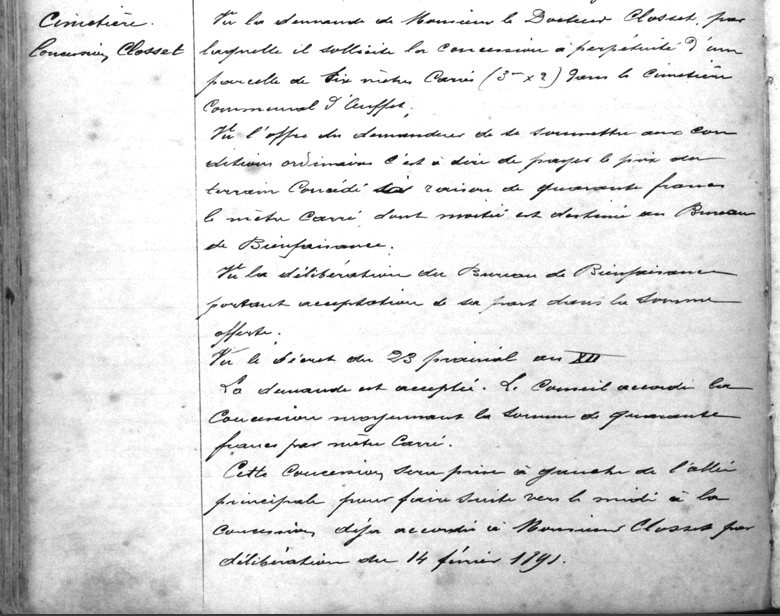 Cimetière.
Concession Closset
Vu la demande de Monsieur le Docteur Closset, par
laquelle il sollicite la concession à perpétuité d'une
parcelle de six mètres carrés (3m x 2) dans le cimetière
communal d'Auffet.
Vu l'offre du demandeur de se soumettre aux con
ditions ordinaires c'est à dire de payer le prix du
terrain concédé à raison de quarante francs
le mètre carré dont moitié est destiné au Bureau
de Bienfaisance.
Vu la délibération du Bureau de Bienfaisance
portant acceptation de sa part dans la somme
offerte.
Vu le décret du 23 prairial an XII
La demande est acceptée. Le Conseil accorde la
concession moyennant la somme de quarante
francs par mètre carré.
Cette concession sera prise à gauche de l'allée
principale pour faire suite vers le midi à la
concession déjà accordée à Monsieur Closset par
délibération du 14 février 1891.